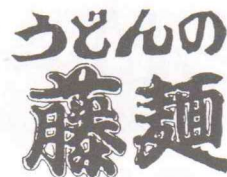 うどんの
藤麺